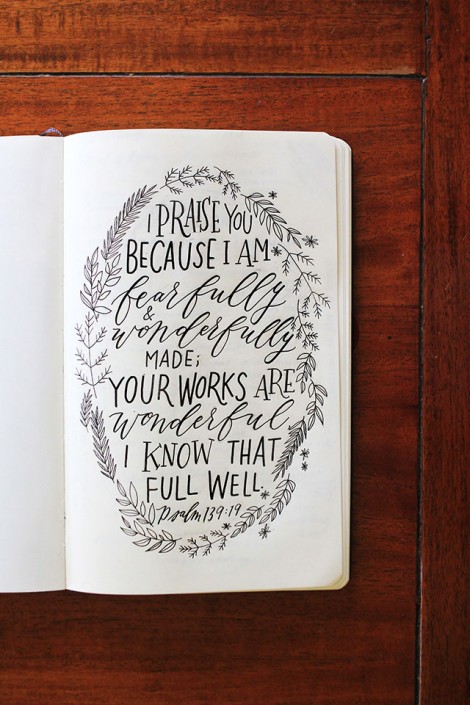 I PRAISE YOU
BECAUSE I AM
fearfully
&
wonderfully
MADE;
YOUR WORKS ARE
wonderful
I KNOW THAT
FULL WELL.
psalm 139:19